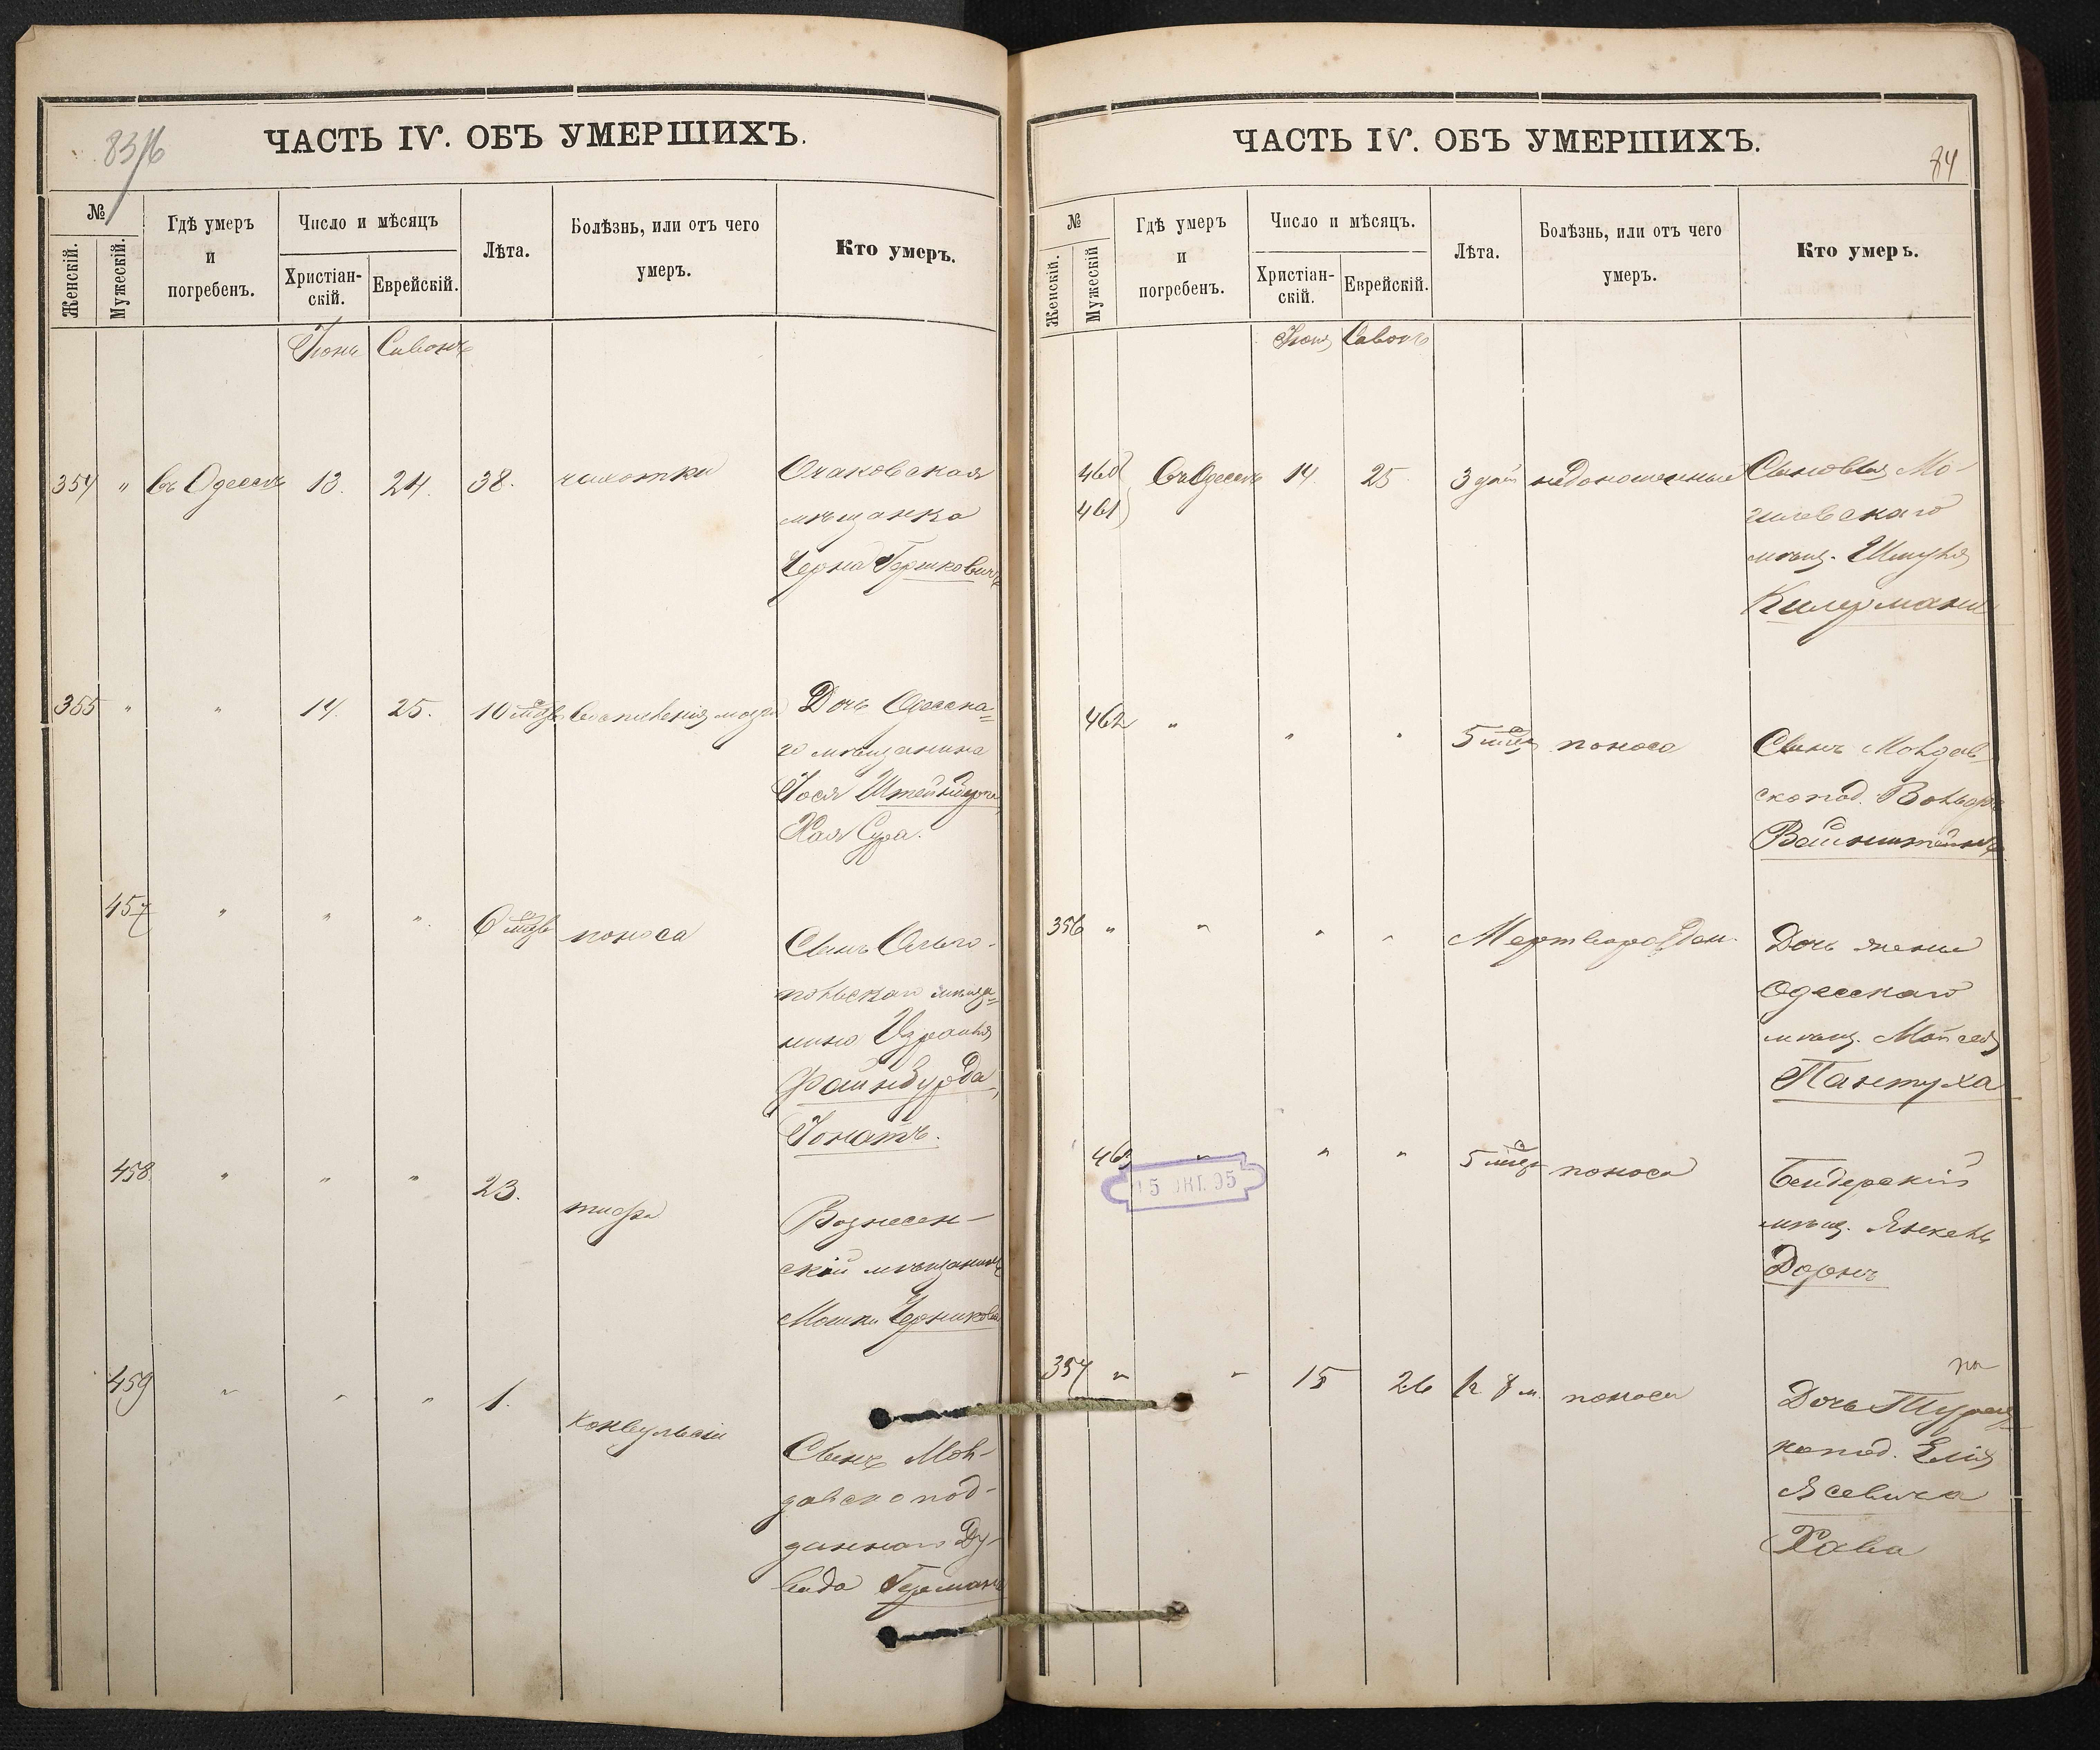 83/б
ЧАСТЬ IV. ОБЪ УМЕРШИХЪ.
№
Женскій.
Мужескій.
Гдѣ умеръ
и
погребенъ.
Число и мѣсяцъ
Христіан-
скій.
Еврейскій.
Лѣта.
Болѣзнь, или отъ чего
умеръ.
Кто умеръ.
Іюнь Сивонъ
354 " въ Одессѣ 13. 24. 38. чахотки Очаковская
мѣщанка
Черна Гершковичъ
355 " " 14. 25. 10 мѣс воспаленія мозга Дочь Одесска=
го мѣщанина
Іося Штейнберга,
Хая Сура.
457 " " " 6 мѣс поноса Сынъ Ольго-
польскаго мѣща=
нина Израиля
Файнбурда,
Іонатъ.
458 " " " 23. тифа Вознесен-
скій мѣщанинъ
Мошко Черниковъ
459 " " " 1. конвульсіи Сынъ Мол-
давско под-
даннаго Ду-
вида Германъ
ЧАСТЬ IV. ОБЪ УМЕРШИХЪ.
84
№
Женскій.
Мужескій
Гдѣ умеръ
и
погребенъ.
Число и мѣсяцъ.
Христіан-
скій.
Еврейскій.
Лѣта.
Болѣзнь, или отъ чего
умеръ.
Кто умеръ.
Іюнь Сивонъ
460 въ Одессѣ 14. 25. 3 дня недоношенные Сыновья Мо-
461
гилевскаго
мѣщ. Шмуля
Килермана
462 " " " 5 мѣс поноса Сынъ Молдав-
скопод. Вольфа
Вайнштейнъ
356 " " " " Мертворожден. Дочь жены
Одесскаго
мѣщ. Мойсея
Пантуха
463 " " " 5 мѣс поноса Бендерскій
мѣщ. Янкель
Доренъ
15 ОКТ. 95
357 " " 15 26 1 г 8 м. поноса Дочь Турец
копод. Елія
Ясевича
Хава